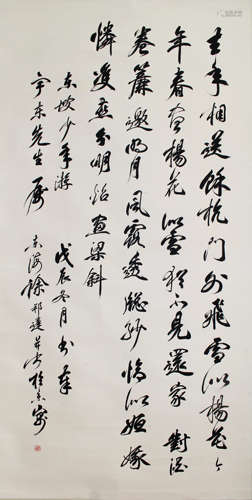 去年相送餘杭門外飛雪似楊花今
年春盡楊花似雪猶不見還家對酒
卷簾邀明月風露透牕紗恰似姮娥
憐雙燕分明照畫梁斜
東坡少年游 戊辰冬月書奉
東先生屬 東海徐邦達并京寓